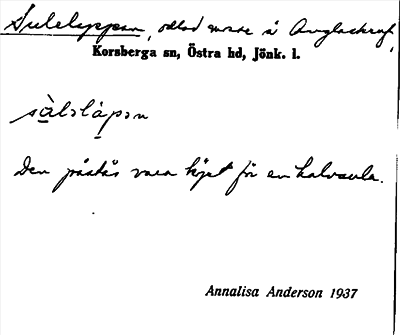 Sulelappen, odlad mosse å Änglaskruf,
Korsberga sn, Östra hd, Jönk. l.
sàlslápən
Den påstås vara köpt för en halvsula.
Annalisa Anderson 1937